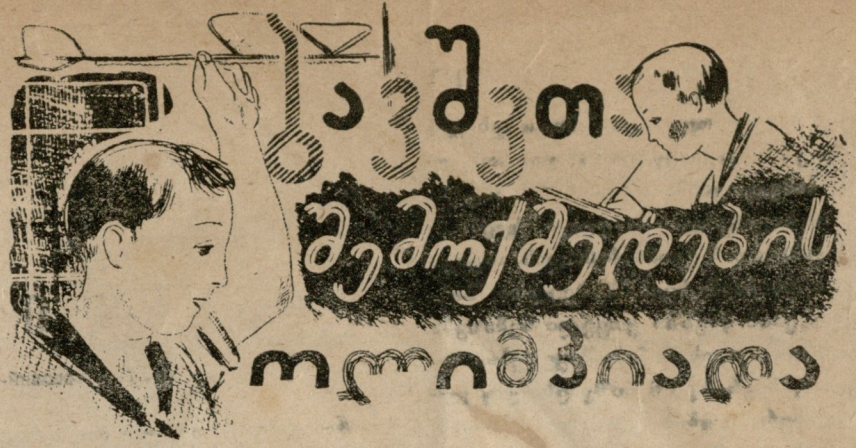 ბავშვთა
შემოქმედების
ოლიმპიადა